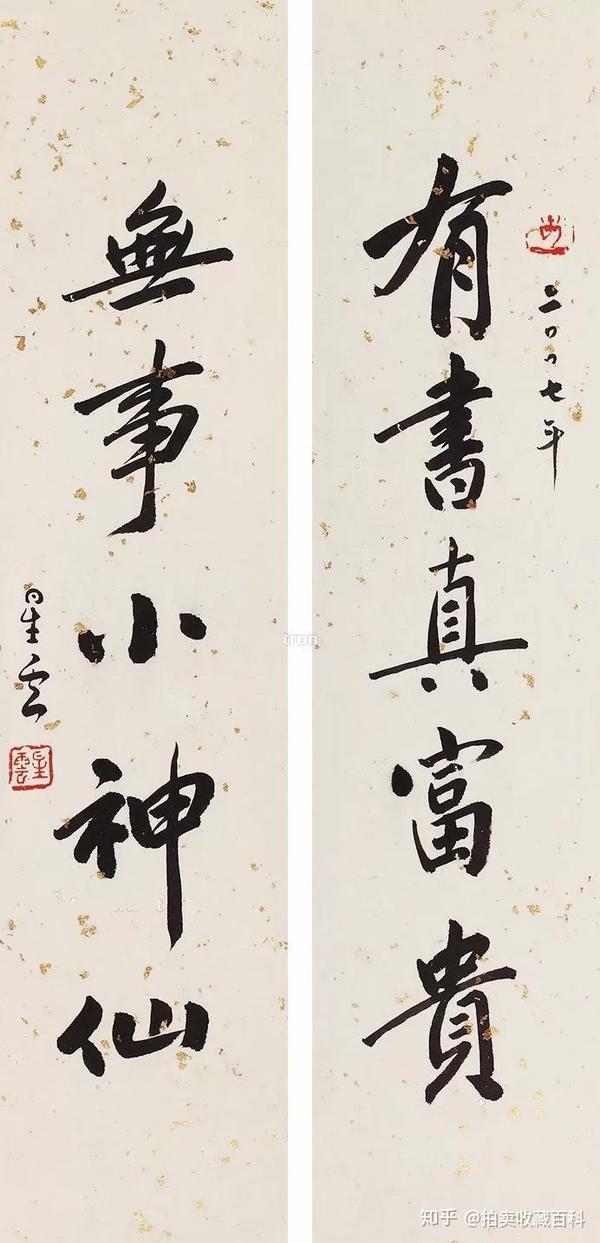 有書真富貴
二〇〇七年
無事小神仙
星雲
星雲
tron
知乎 @拍卖收藏百科